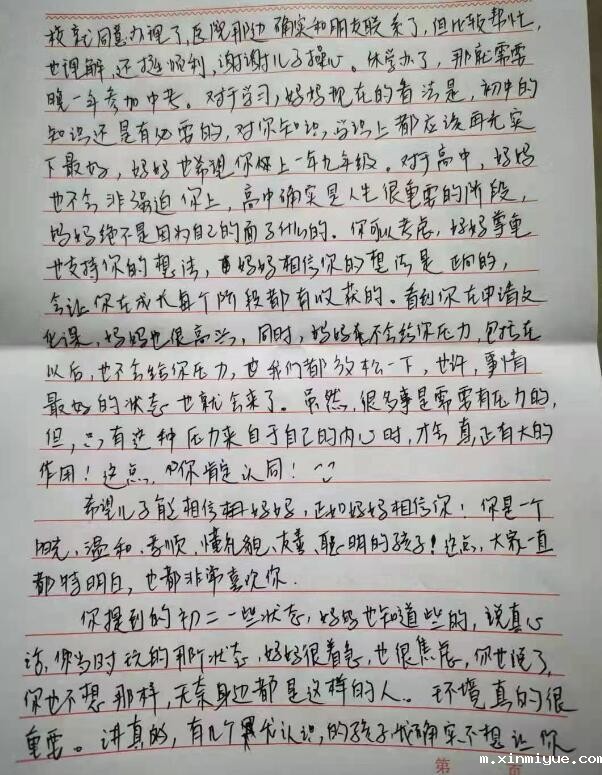 校就同意办理了,医院那边确实和朋友联系了,但比较帮忙,
也理解,还挺顺利,谢谢儿子操心。休学办了,那就需要
晚一年参加中考。对于学习,妈妈现在的看法是,初中的
知识还是有必要的,对你知识,学识上都应该再充实
下最好,妈妈也希望你上一年九年级。对于高中,妈妈
也不会非强迫你上,高中确实是人生很重要的阶段,
妈妈绝不是因为自己的面子什么的。你可以考虑,妈妈尊重
也支持你的想法,妈妈相信你的想法是正向的,
会让你在成长每个阶段都有收获的。看到你在申请文
化课,妈妈也很高兴,同时,妈妈不会给你压力,包括在
以后,也不会给你压力,我们都放松一下,也许,事情
最好的状态也就会来了。虽然,很多事是需要有压力的,
但,有这种压力来自于自己的内心时,才会真正有大的
作用!这点,你肯定认同!
希望儿子能相信妈妈,正如妈妈相信你!你是一个
阳光,温和,孝顺,懂礼貌,友善,聪明的孩子!这点,大家一直
都特明白,也都非常喜欢你.
你提到的初二一些状态,妈妈也知道些的,说真心
话,你当时玩的那阶状态,妈妈很着急,也很焦虑,你也说了,
你也不想那样,无奈身边都是这样的人。环境真的很
重要。讲真的,有几个我认识,的孩子,我确实不想让你
第 页
m.xinmiyue.com